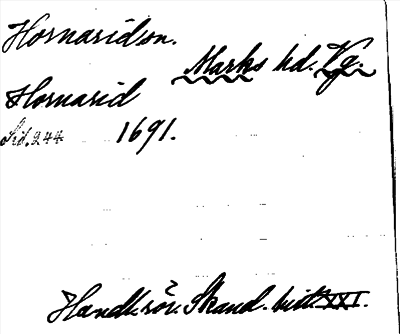 Hornaridsn.
Marks hd. Vg.
Hornarid
Sid. 244 1691.
Handl. rör. Skand. hist. XXI.